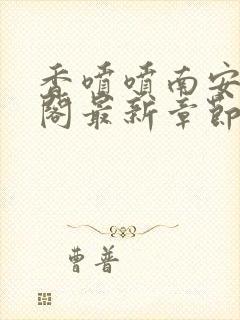 香喷喷南安
阁最新章节
曹普